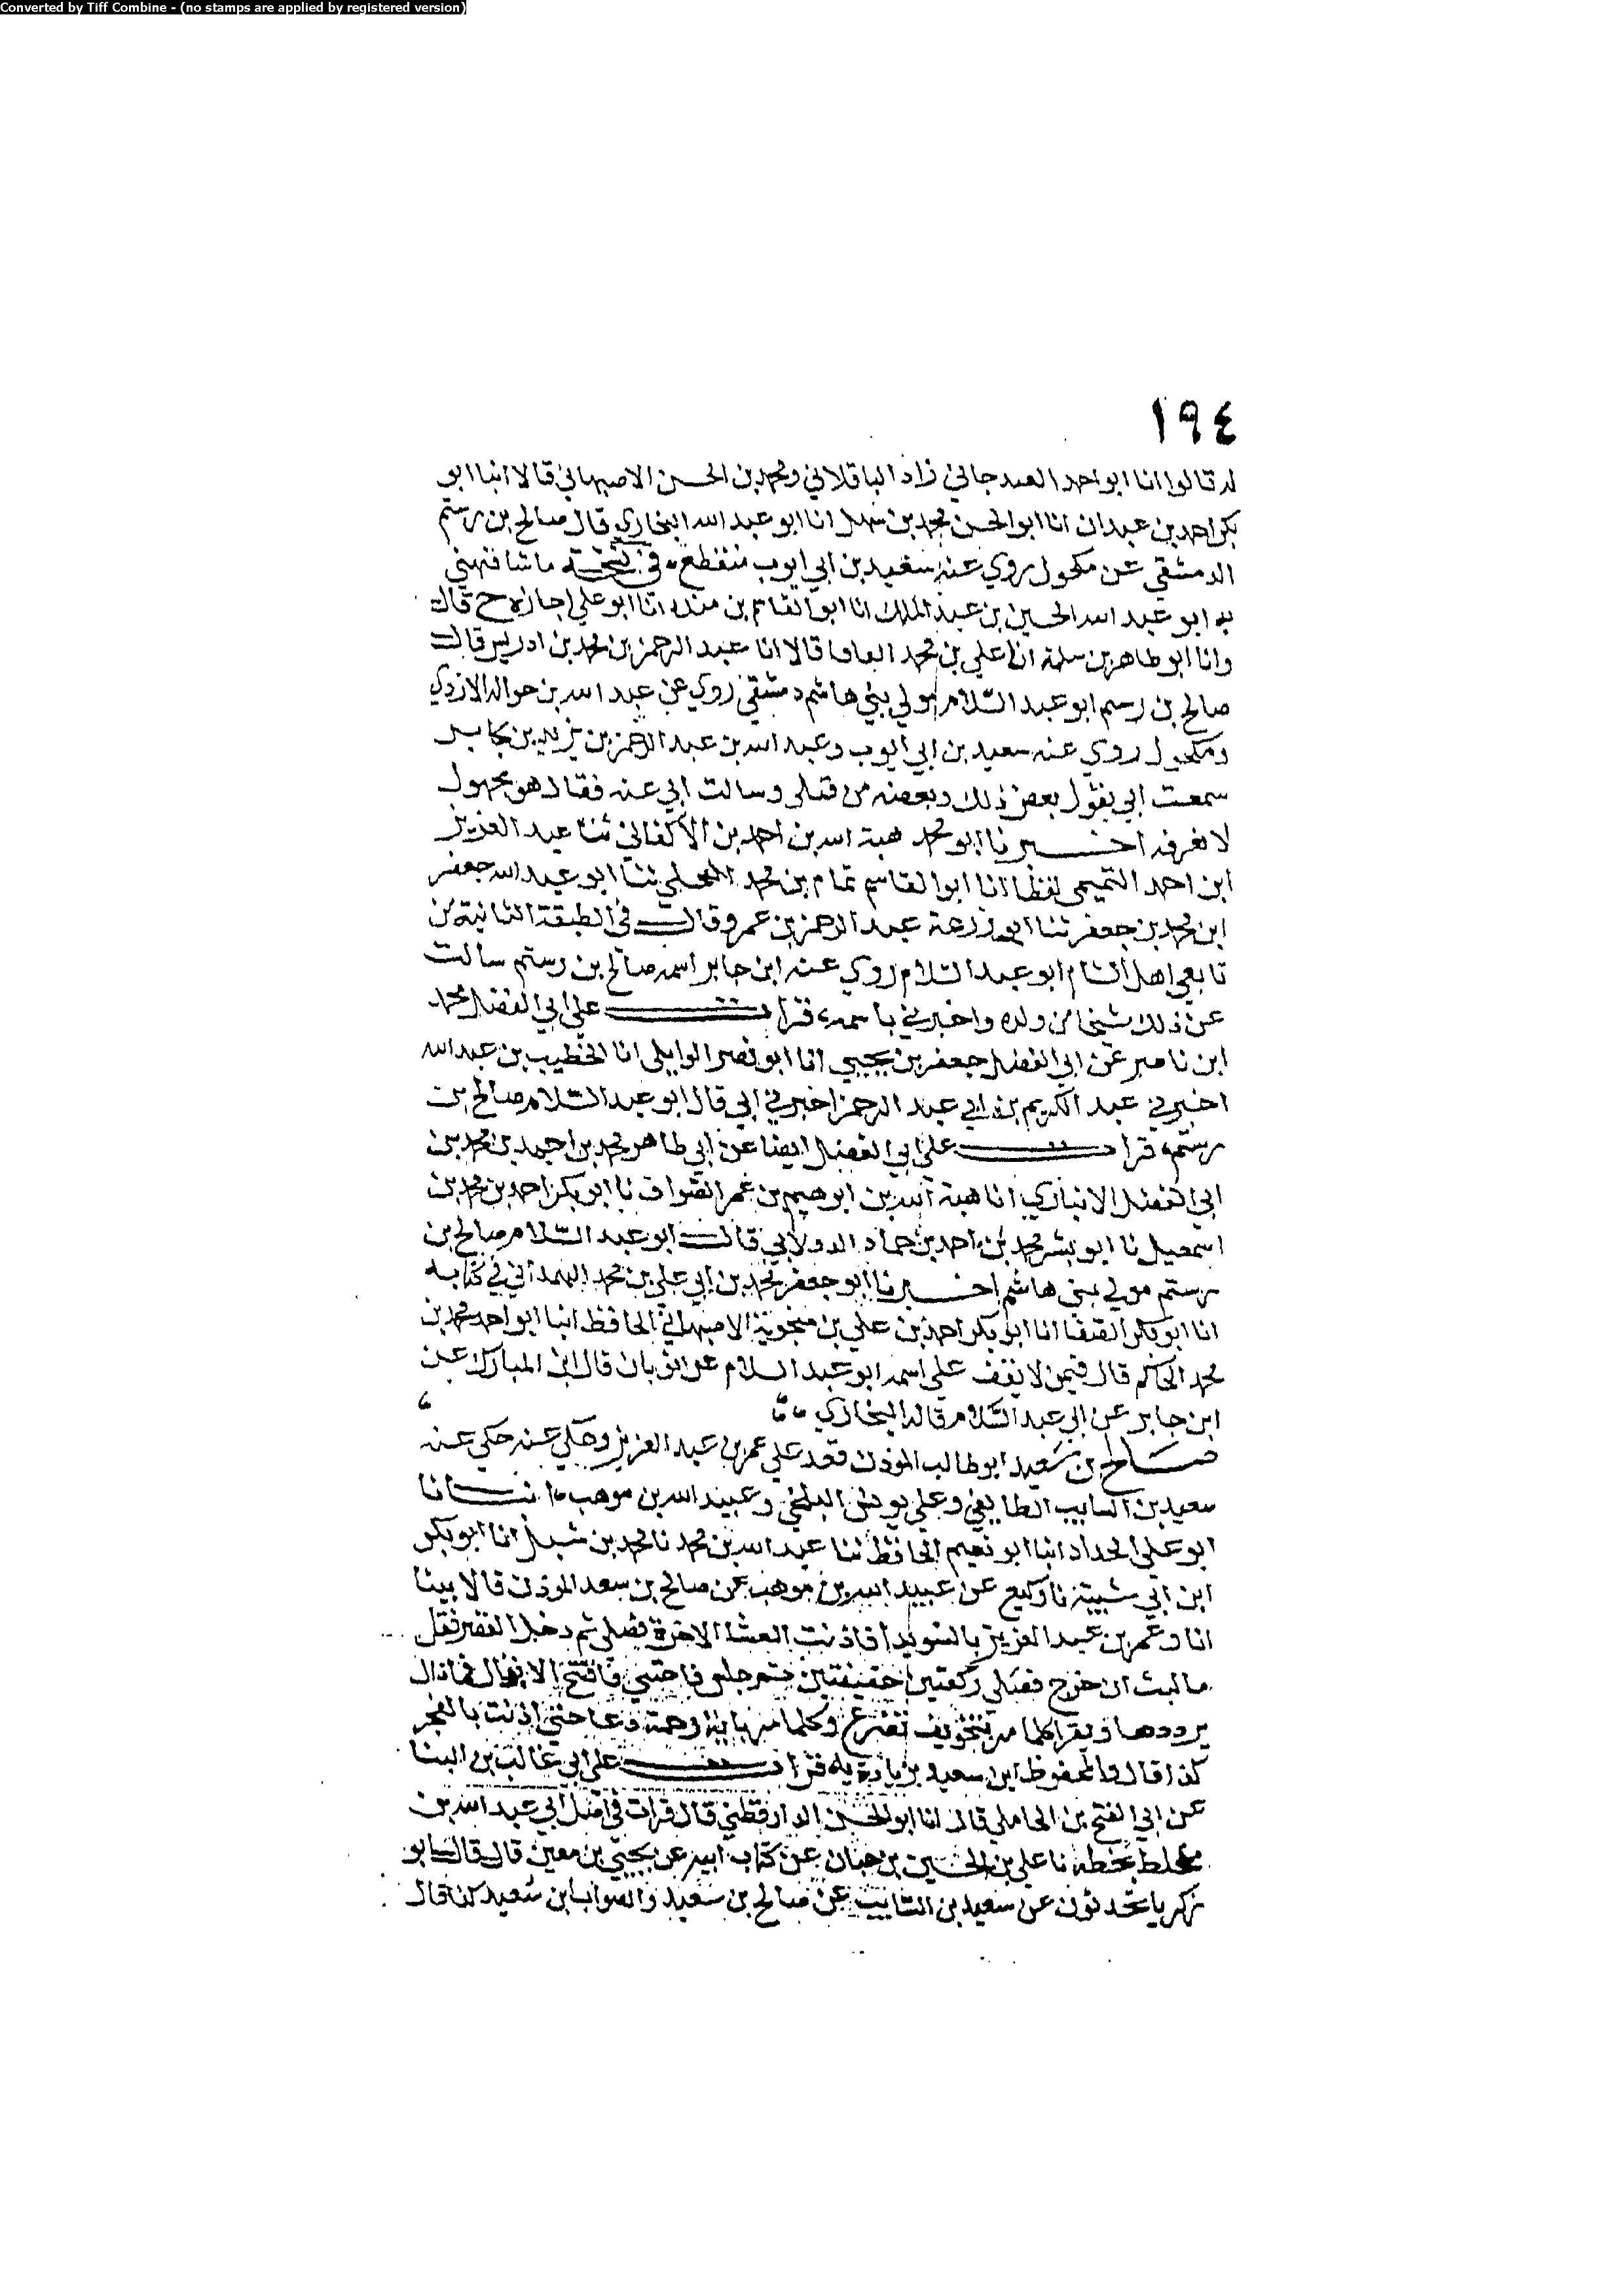 Converted by Tiff Combine - (no stamps are applied by registered version)
١٩٤
له قالوا انا ابو احمد الغندجاني زاد الباقلاني ومحمد بن الحسن الاصبهاني قالا انبا ابو
بكر احمد بن عبدان انا ابو الحسن محمد بن سهل انا ابو عبد الله البخاري قال صالح بن رستم
الدمشقي عن مكحول روي عنه سعيد بن ابي ايوب منقطع في نسخة ما شافهني
به ابو عبد الله الحسين بن عبد الملك انا ابو القاسم بن منده انا ابو علي اجازة ح قال
وانا ابو طاهر بن سلمة انا علي بن محمد الفافا قالا انا عبد الرحمن بن محمد بن ادريس قال
صالح بن رستم ابو عبد السلام مولي بني هاشم دمشقي روي عن عبد الله بن حواله الازدي
ومكحول روي عنه سعيد بن ابي ايوب وعبد الله بن عبد الرحمن بن يزيد بن جابر
سمعت ابي يقول بعض ذلك وبعضه من قبلي وسالت ابي عنه فقال هو مجهول
لا نعرفه اخبرنا ابو محمد هبة الله بن احمد بن الاكفاني ثنا عبد العزيز
ابن احمد التميمي لفظا انا ابو القاسم تمام بن محمد البجلي ثنا ابو عبد الله جعفر
ابن محمد بن جعفر ثنا ابو زرعة عبد الرحمن بن عمرو قال في الطبقة الثانية من
تابعي اهل الشام ابو عبد السلام روي عنه ابن جابر اسمه صالح بن رستم سالت
عن ذلك شيخا من ولده واخبرني باسمه، قرات علي ابي الفضل محمد
ابن ناصر عن ابي الفضل جعفر بن يحيي انا ابو نصر الوايلي انا الخطيب بن عبد الله
اخبرني عبد الكريم بن ابي عبد الرحمن اخبرني ابي قال ابو عبد السلام صالح بن
رستم، قرات علي ابي الفضل ايضا عن ابي طاهر محمد بن احمد بن محمد بن
ابي الفضل الانباري انا هبة الله بن ابرهيم بن عمر الصواف نا ابو بكر احمد بن محمد بن
اسمعيل نا ابو بشر محمد بن احمد بن حماد الدولابي قال ابو عبد السلام صالح بن
رستم مولي بني هاشم اخبرنا ابو جعفر محمد بن ابي علي بن محمد الهمداني في كتابه
انا ابو بكر الصفا انا ابو بكر احمد بن علي بن منجوية الاصبهاني الحافظ انبا ابو احمد محمد بن
محمد الحاكم قال فيمن لا نقف علي اسمه ابو عبد السلام عن ثوبان قال ابن المبارك عن
ابن جابر عن ابي عبد السلام قاله البخاري
صالح بن سعيد ابو طالب الموذن وفد علي عمر بن عبد العزيز وحكي عنه حكي عنه
سعيد بن السايب الطايفي وعلي يونس البلخي وعبيد الله بن موهب، انبانا
ابو علي الحداد انبا ابو نعيم الحافظ ثنا عبد الله بن محمد نا محمد بن شبل انا ابو بكر
ابن ابي شيبة نا وكيع عن عبيد الله بن موهب عن صالح بن سعد الموذن قال بينا
انا وعمر بن عبد العزيز بالسويدا فاذنت العشا الاخرة فصلي ثم دخل القصر فقل
ما لبث ان خرج فصلي ركعتين خفيفتين ثم جلس فاحتبي فافتتح الانفال فما زال
يرددها ويقرا كلما مر بتخويف تضرع وكلما مر باية رحمة دعا حتي اذنت بالفجر
كذا قال والمحفوظ ابن سعيد بزيادة يا، قرات علي ابي غالب بن البنا
عن ابي الفتح بن المحاملي قال انا ابو الحسن الدارقطني قال قرات في اصل ابي عبد الله بن
مخلط بخطه نا علي بن الحسين بن حبان عن كتاب ابيه عن يحيي بن معين قال قال ابو
زكريا يتحدثون عن سعيد بن السايب عن صالح بن سعيد والصواب ابن سعيد كذا قال